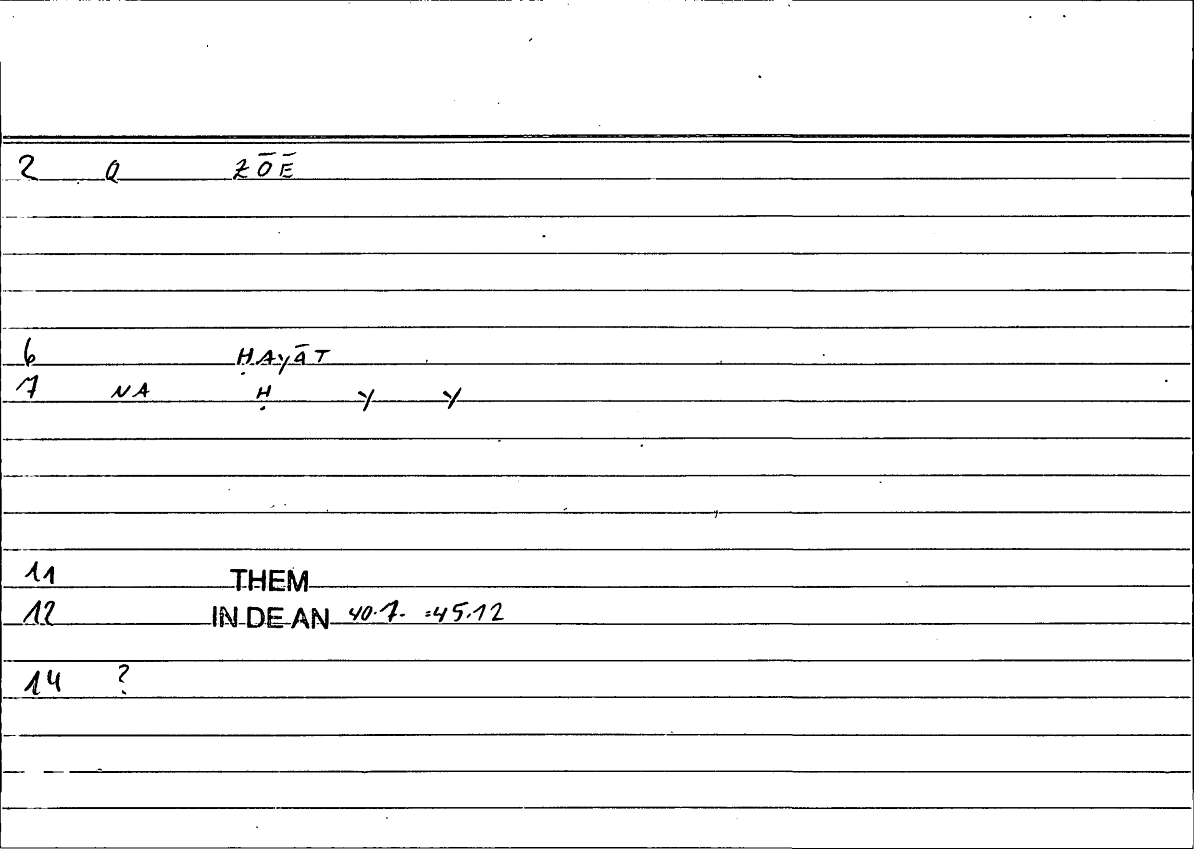 2 Q ZŌĒ
6 ḤAYĀT
7 NA Ḥ Y Y
11 THEM
12 IN DE AN 40.7. =45.12
14 ?